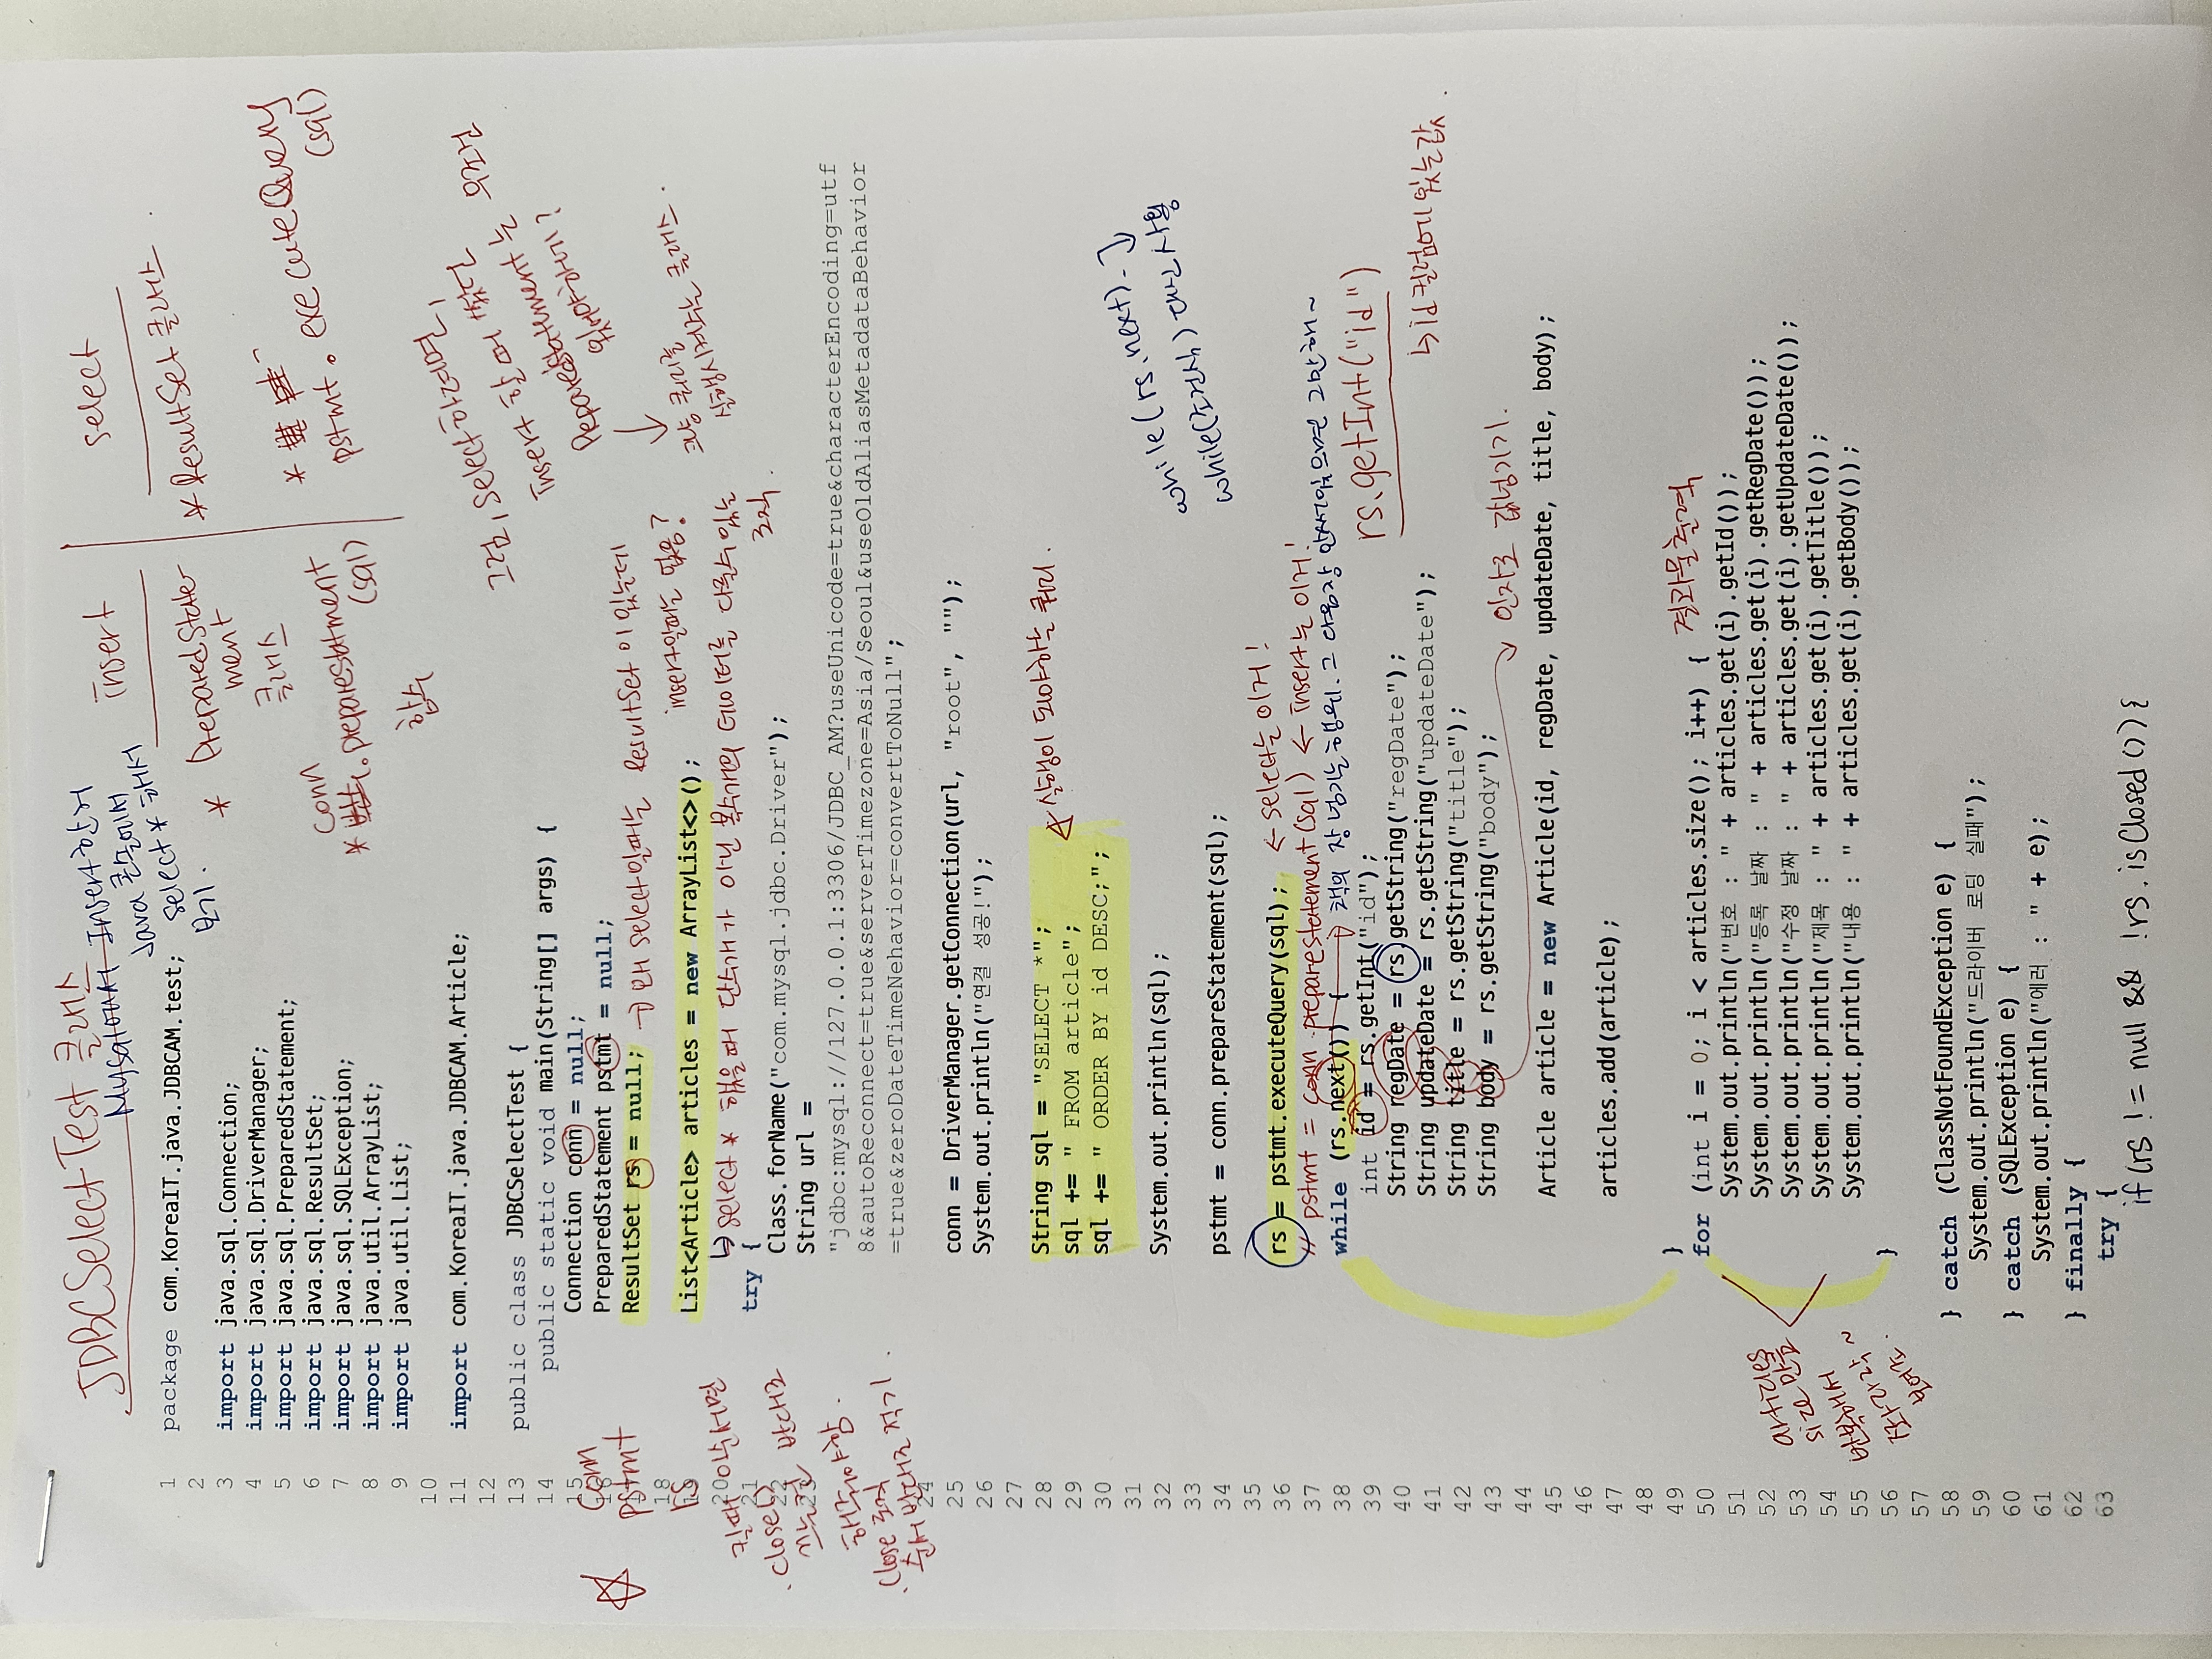 JDBCSelectTest 클래스
Mysql에서 Insert한거
Java 콘솔에서
select * 해서
보기.
insert
* PreparedState
ment
클래스
conn
* .preparestatment
(sql)
함수
select
* ResultSet 클래스
* pstmt. executeQuery
(sql)
1 package com.KoreaIT.java.JDBCAM.test;
2
3 import java.sql.Connection;
4 import java.sql.DriverManager;
5 import java.sql.PreparedStatement;
6 import java.sql.ResultSet;
7 import java.sql.SQLException;
8 import java.util.ArrayList;
9 import java.util.List;
10
11 import com.KoreaIT.java.JDBCAM.Article;
12
13 public class JDBCSelectTest {
14 public static void main(String[] args) {
15 Connection conn = null;
PreparedStatement pstmt = null;
ResultSet rs = null;
18
List<Article> articles = new ArrayList<>();
20
21 try {
22 Class.forName("com.mysql.jdbc.Driver");
23 String url =
"jdbc:mysql://127.0.0.1:3306/JDBC_AM?useUnicode=true&characterEncoding=utf
8&autoReconnect=true&serverTimezone=Asia/Seoul&useOldAliasMetadataBehavior
=true&zeroDateTimeNehavior=convertToNull";
24
25 conn = DriverManager.getConnection(url, "root", "");
26 System.out.println("연결 성공!");
27
28 String sql = "SELECT *";
29 sql += " FROM article";
30 sql += " ORDER BY id DESC;";
31
32 System.out.println(sql);
33
34 pstmt = conn.prepareStatement(sql);
35
36 rs = pstmt.executeQuery(sql); ← select는 이거!
37 // pstmt = conn.preparestatement(sql) ← insert는 이거!
38 while (rs.next()) {
39 int id = rs.getInt("id");
40 String regDate = rs.getString("regDate");
41 String updateDate = rs.getString("updateDate");
42 String title = rs.getString("title");
43 String body = rs.getString("body");
44
45 Article article = new Article(id, regDate, updateDate, title, body);
46
47 articles.add(article);
48
49 }
50 for (int i = 0; i < articles.size(); i++) { 결과물출력
51 System.out.println("번호 : " + articles.get(i).getId());
52 System.out.println("등록 날짜 : " + articles.get(i).getRegDate());
53 System.out.println("수정 날짜 : " + articles.get(i).getUpdateDate());
54 System.out.println("제목 : " + articles.get(i).getTitle());
55 System.out.println("내용 : " + articles.get(i).getBody());
56 }
57
58 } catch (ClassNotFoundException e) {
59 System.out.println("드라이버 로딩 실패");
60 } catch (SQLException e) {
61 System.out.println("에러 : " + e);
62 } finally {
63 try {
if (rs != null && !rs.isClosed()) {
그럼! select하려면!
insert 할 때 썼던
insert statement는 무조건
PreparedStatement
있어야하네?
그냥 쿼리를
실행시켜주는 클래스.
select일때는 ResultSet 이 있는데
insert일때는 없음?
select * 했을때 단수개가 아닌 복수개의 데이터를 다룰수있는
로직
실행이 되어야하는 쿼리
while(rs.next)-
while(조건식) 대신 사용
책의 장 넘기는 행위. 그 다음장 안써있으면 그만해~
rs.getInt("id")
↳ id 컬럼에 있는값.
인자로 값넘기기.
conn
pstmt
rs
킬때 이순서면
.close() 반대로
해줘야함.
.close 로직
순서 반대로 적기.
아티클스
size 만큼
반복해서
보여줘.